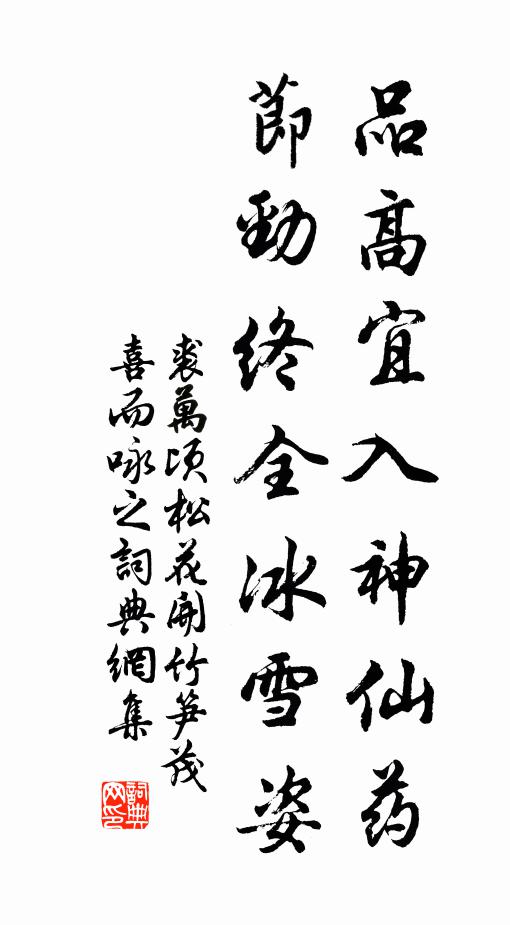 品高宜入神仙药
節勁终全冰雪姿
裘萬顷松花開竹笋茂
喜而咏之詞典網集
詞典网印